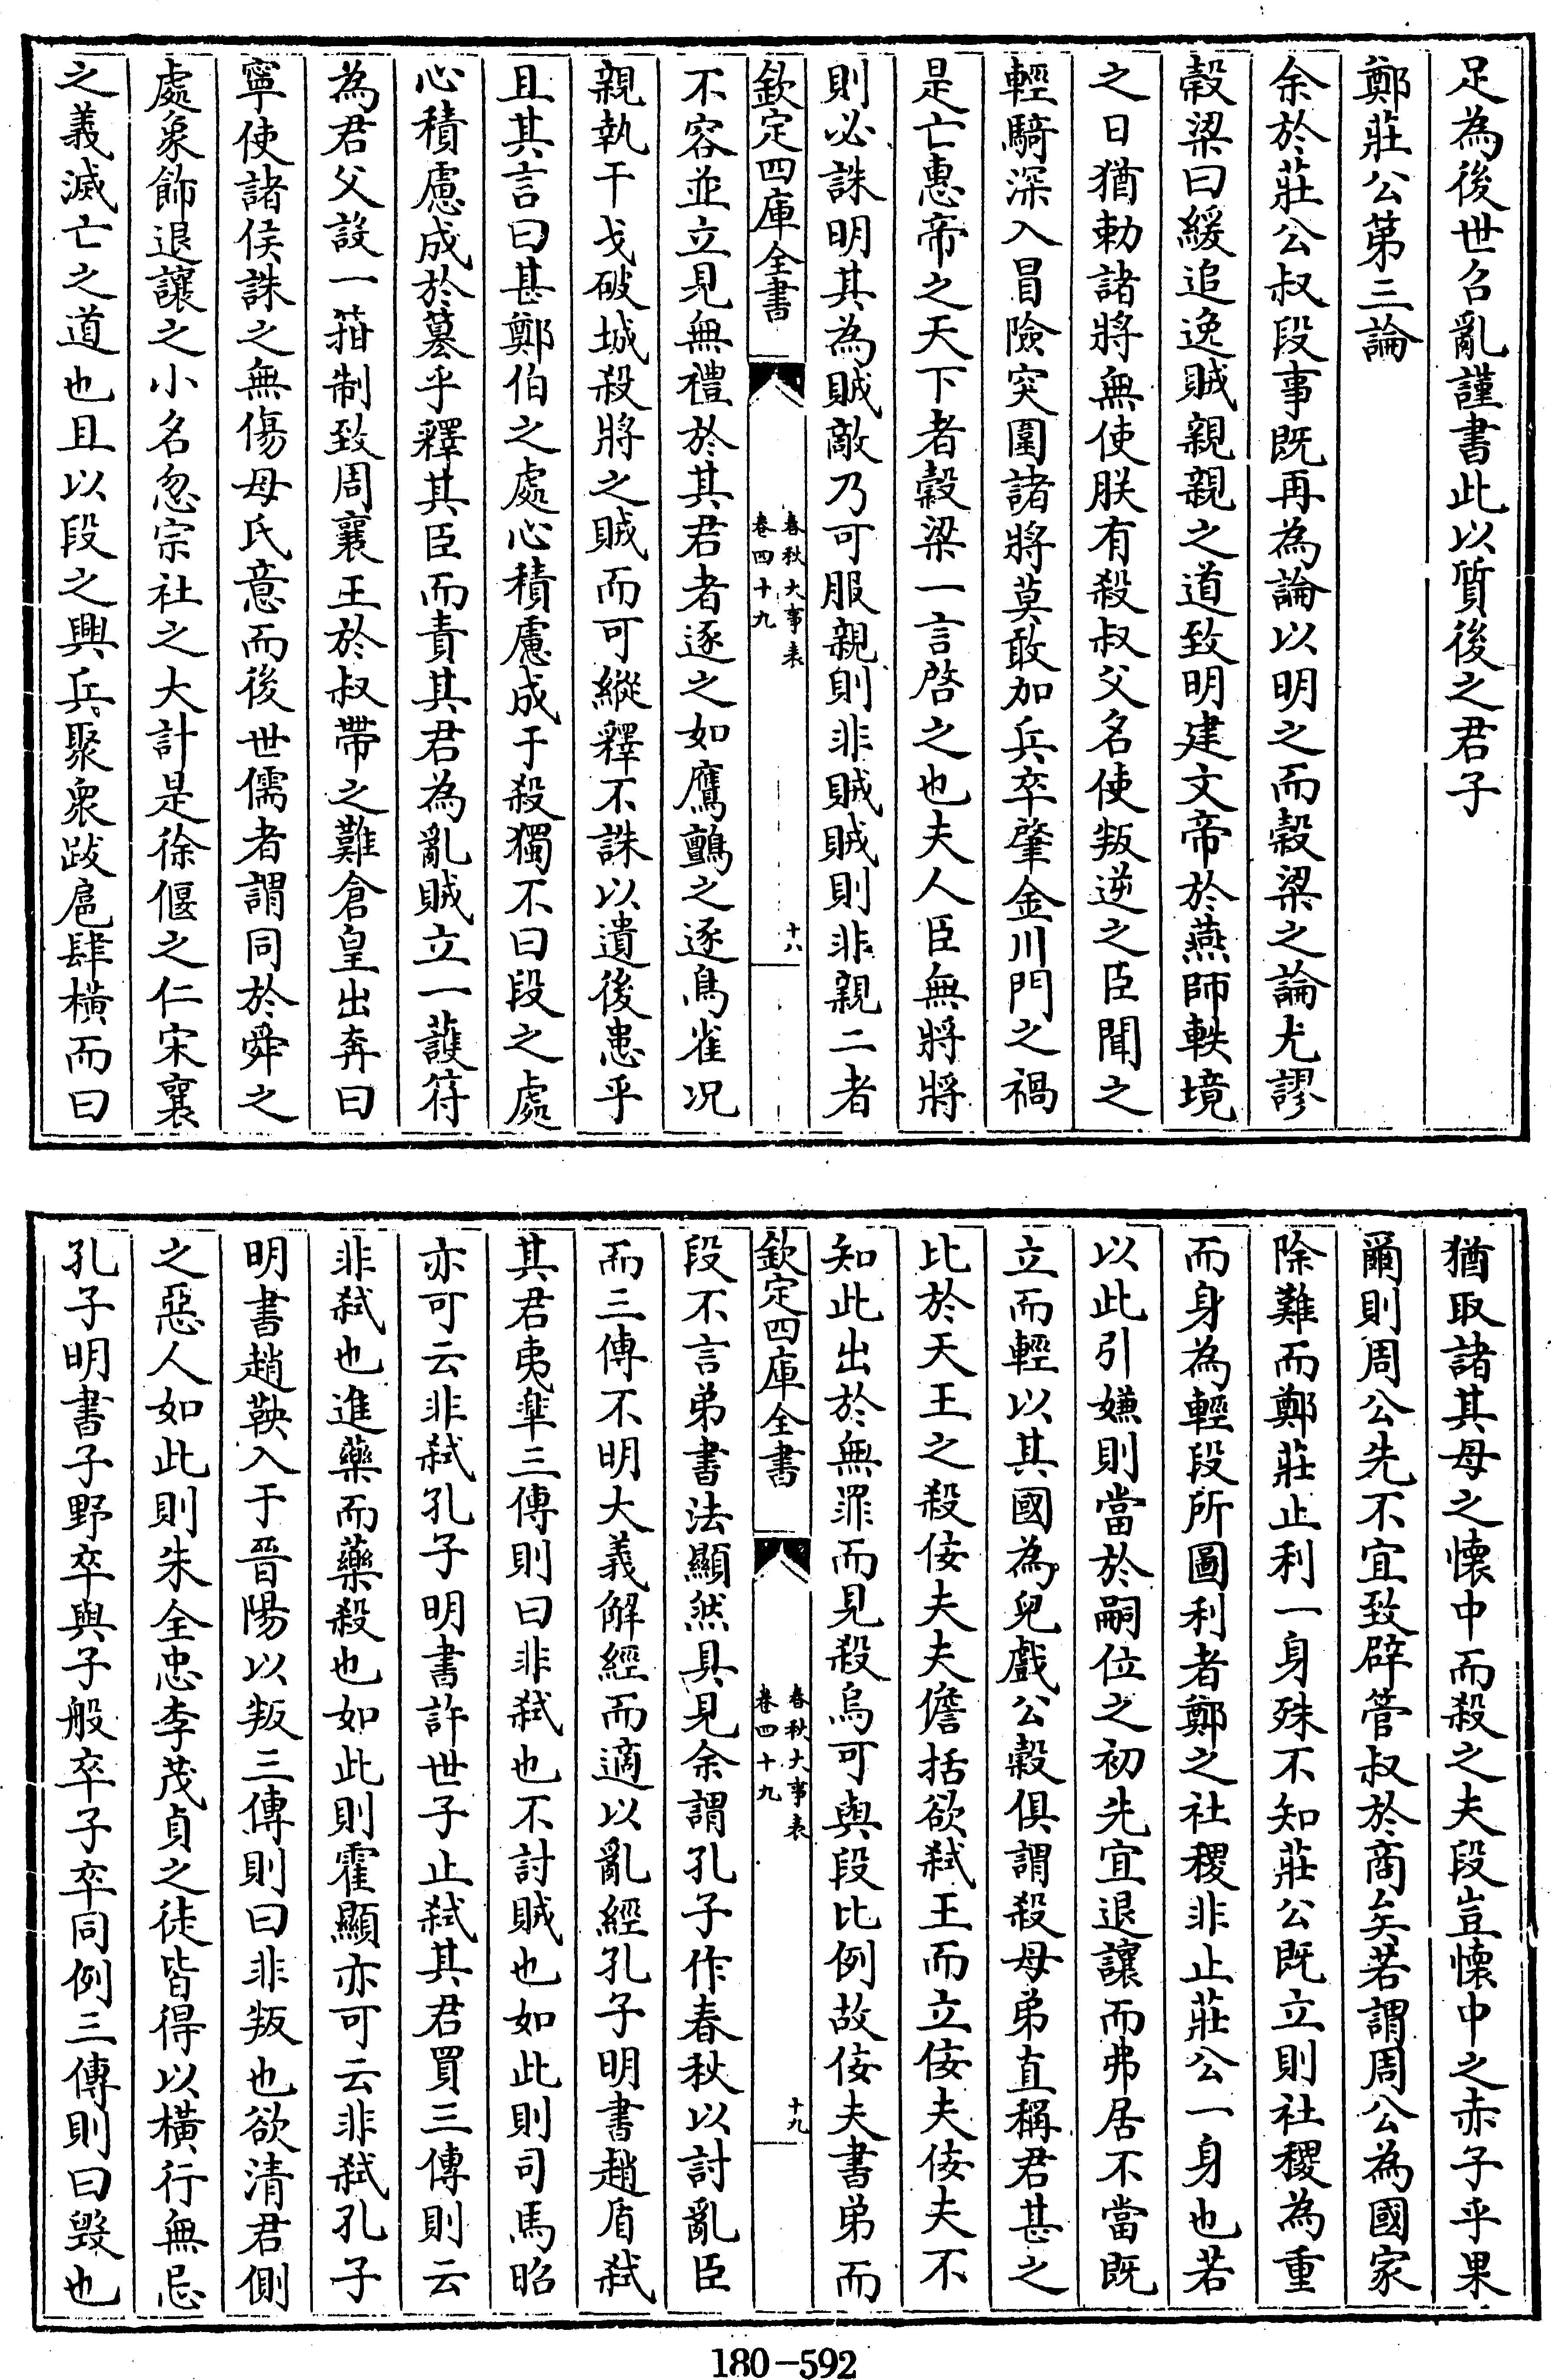 足為後世召亂謹書此以質後之君子
鄭莊公第三論
余於莊公叔段事既再為論以明之而穀梁之論尤謬
穀梁曰緩追逸賊親親之道致明建文帝於燕師軼境
之日猶勅諸將無使朕有殺叔父名使叛逆之臣聞之
輕騎深入冒險突圍諸將莫敢加兵卒肇金川門之禍
是亡惠帝之天下者穀梁一言啓之也夫人臣無將將
則必誅明其為賊敵乃可服親則非賊賊則非親二者
欽定四庫全書
春秋大事表
卷四十九
十八
不容並立見無禮於其君者逐之如鷹鸇之逐鳥雀况
親執干戈破城殺將之賊而可縱釋不誅以遺後患乎
且其言曰甚鄭伯之處心積慮成于殺獨不曰段之處
心積慮成於簒乎釋其臣而責其君為亂賊立一護符
為君父設一箝制致周襄王於叔帶之難倉皇出奔曰
寧使諸侯誅之無傷母氏意而後世儒者謂同於舜之
處象飾退讓之小名忽宗社之大計是徐偃之仁宋襄
之義滅亡之道也且以段之興兵聚衆跋扈肆橫而曰
猶取諸其母之懷中而殺之夫段豈懷中之赤子乎果
爾則周公先不宜致辟管叔於商矣若謂周公為國家
除難而鄭莊止利一身殊不知莊公既立則社稷為重
而身為輕段所圖利者鄭之社稷非止莊公一身也若
以此引嫌則當於嗣位之初先宜退讓而弗居不當既
立而輕以其國為兒戲公穀俱謂殺母弟直稱君甚之
比於天王之殺佞夫夫儋括欲弒王而立佞夫佞夫不
知此出於無罪而見殺烏可與段比例故佞夫書弟而
欽定四庫全書
春秋大事表
卷四十九
十九
段不言弟書法顯然具見余謂孔子作春秋以討亂臣
而三傳不明大義解經而適以亂經孔子明書趙盾弒
其君夷臯三傳則曰非弒也不討賊也如此則司馬昭
亦可云非弒孔子明書許世子止弒其君買三傳則云
非弒也進藥而藥殺也如此則霍顯亦可云非弒孔子
明書趙鞅入于晉陽以叛三傳則曰非叛也欲清君側
之惡人如此則朱全忠李茂貞之徒皆得以橫行無忌
孔子明書子野卒與子般卒子卒同例三傳則曰毀也
180-592